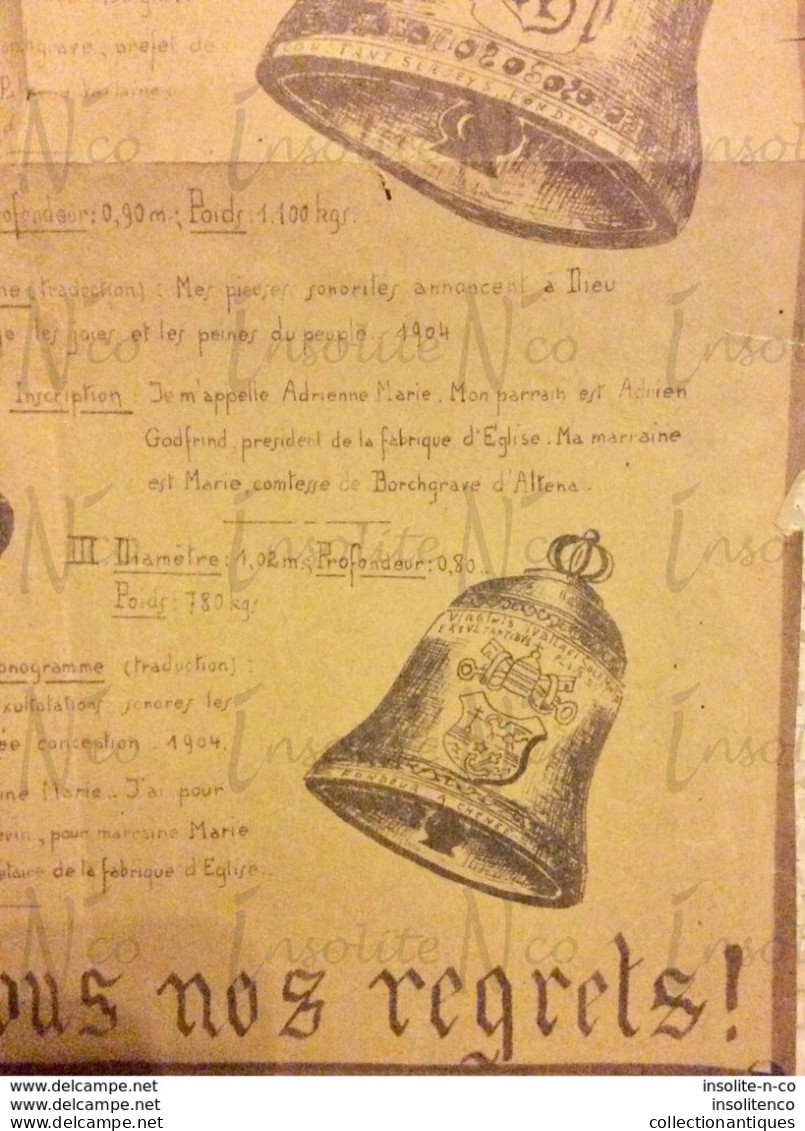 grave, préfet de
CONSTANT SERGEYS, FONDEUR
rofondeur: 0,90 m.; Poids: 1.100 kgs.
(traduction) : Mes pieuses sonorites annoncent à Dieu
les joies et les peines du peuple - 1904
Inscription : Je m'appelle Adrienne Marie. Mon parrain est Adrien
Godfrind, president de la fabrique d'Eglise. Ma marraine
est Marie, comtesse de Borchgrave d'Altena -
III Diamètre : 1,02 m.; Profondeur : 0,80 -
Poids : 780 kgs
VIRGINIS IVBILAEI
EXVLTANTIBVS
onogramme (traduction) :
xultations sonores les
ée conception - 1904.
ine Marie - J'ai pour
evin, pour marraine Marie
étaire de la fabrique d'Eglise -
FONDEUR A CHENEE
ous nos regrets!
Insolite N'co
www.delcampe.net
www.delcampe.net
www.delcampe.net
insolite-n-co
insolitenco
collectionantiques